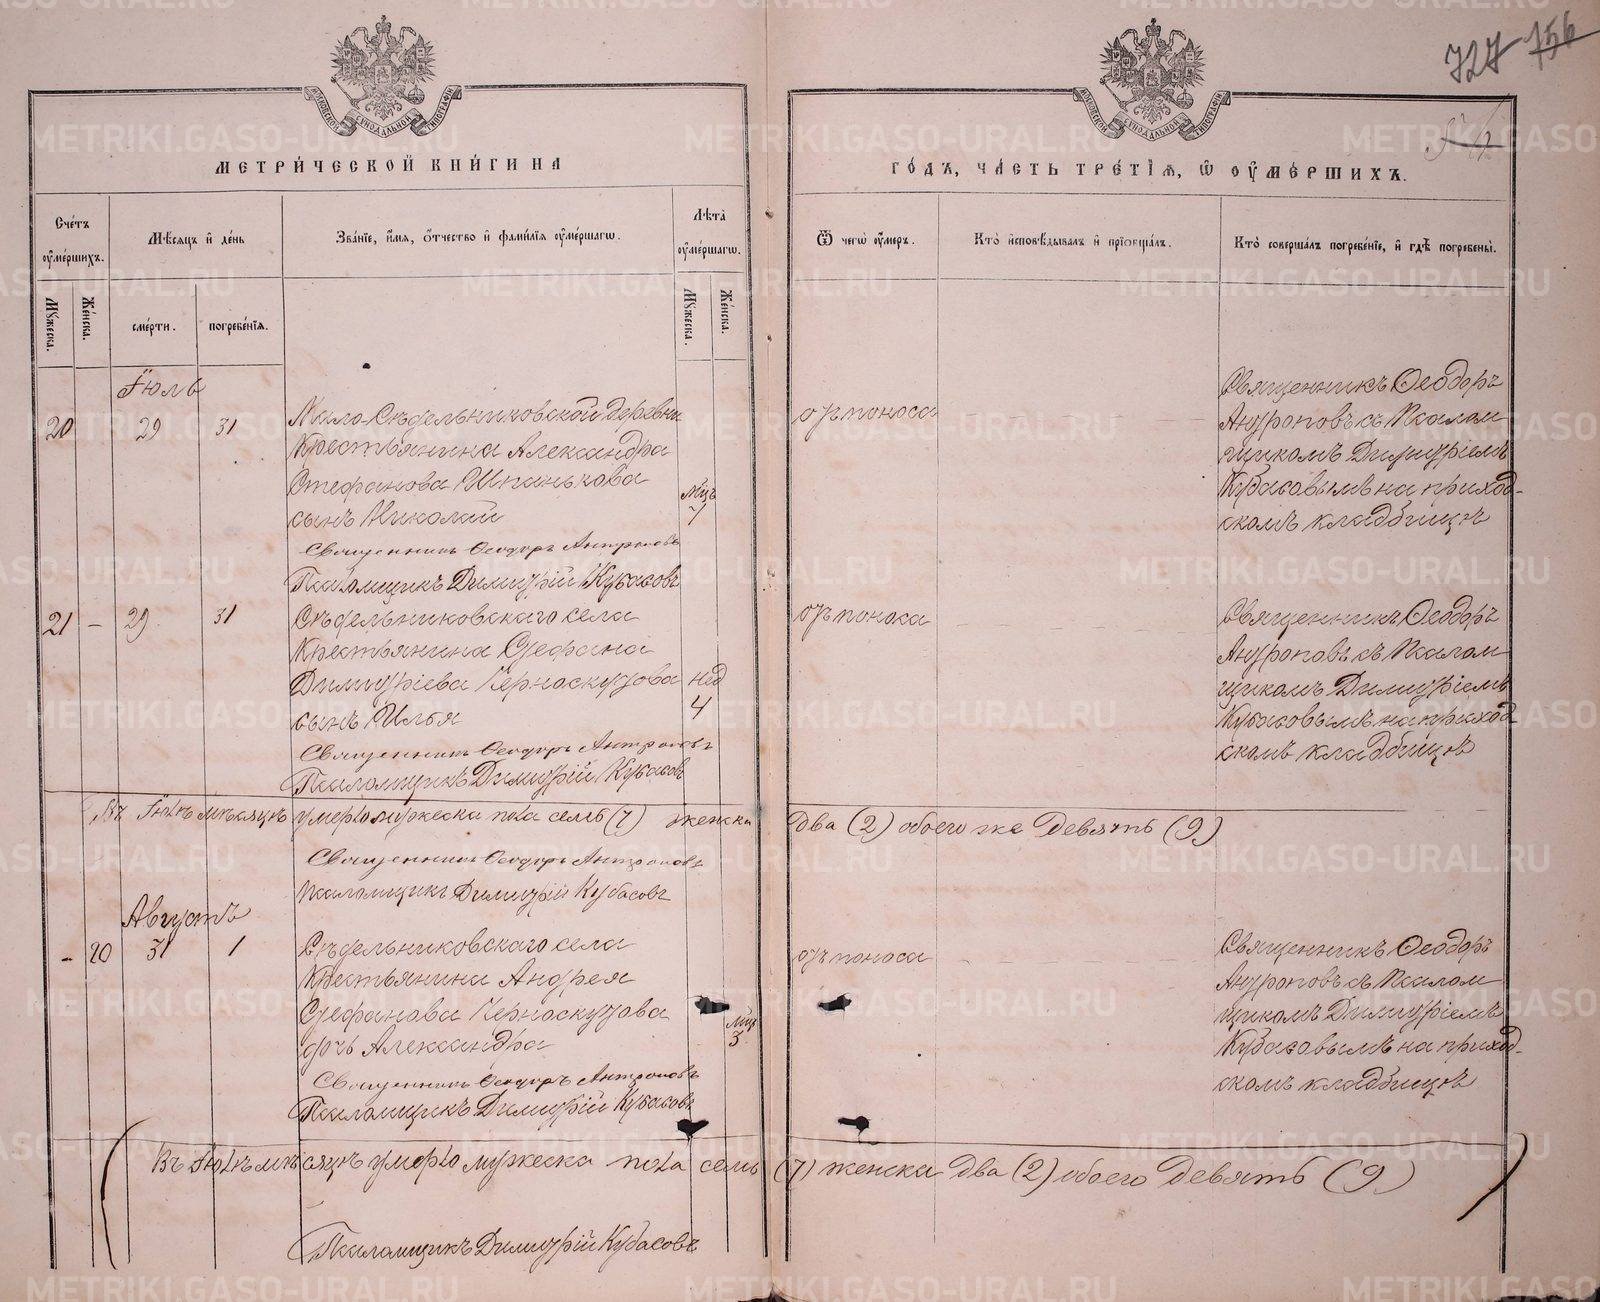 727 156
МЕТРИ́ЧЕСКОЙ КНИ́ГИ НА
ГО́ДЪ, ЧА́СТЬ ТРЕ́ТІѦ, Ѿ ОУ҆МЕ́РШИХЪ.
Сче́тъ оу҆ме́ршихъ.
Мѣ́сѧцъ и҆ де́нь
Зва́нїе, и҆́мѧ, о҆́тчество и҆ фами́лїѧ оу҆ме́ршагѡ.
Лѣ̀та оу҆ме́ршагѡ.
Ѿ чегѡ̀ оу҆́меръ.
Кто̀ и҆сповѣ́дывалъ и҆ прїѡбща́лъ.
Кто̀ соверша́лъ погребе́нїе, и҆ гдѣ̀ погребены̀.
Мꙋ́жеска.
Же́нска.
сме́рти.
погребе́нїѧ.
Мꙋ́жеска.
Же́нска.
Іюль
20 29 31
Мало-Сѣдельниковской деревни
Крестьянина Александра
Стефанова Шпанькова
сынъ Николай
мѣц
7
отъ поноса
Священникъ Ѳеодоръ
Антроповъ съ Псалом
щикомъ Димитріемъ
Кубасовымъ на приход-
скомъ кладбищѣ
Священникъ Ѳеодоръ Антроповъ
Псаломщикъ Димитрій Кубасовъ
21 – 29 31
Сѣдельниковскаго села
Крестьянина Стефана
Димитріева Черноскутова
сынъ Илья
нед
4
отъ поноса
Священникъ Ѳеодоръ
Антроповъ съ Псалом
щикомъ Димитріемъ
Кубасовымъ на приход
скомъ кладбищѣ
Священникъ Ѳеодоръ Антроповъ
Псаломщикъ Димитрій Кубасов
Въ Іюлѣ мѣсяцѣ умерло мужеска пола семь (7) женска два (2) обоего же девять (9)
Священникъ Ѳеодоръ Антроповъ
Псаломщикъ Димитрій Кубасовъ
Августъ
– 20 31 1
Сѣдельниковскаго села
Крестьянина Андрея
Стефанова Черноскутова
дочь Александра
мѣц
3
отъ поноса
Священникъ Ѳеодоръ
Антроповъ съ Псалом
щикомъ Димитріемъ
Кубасовымъ на приход-
скомъ кладбищѣ
Священникъ Ѳеодоръ Антроповъ
Псаломщикъ Димитрій Кубасовъ
Въ Іюлѣ мѣсяцѣ умерло мужеска пола семь (7) женска два (2) обоего девять (9)
Псаломщикъ Димитрій Кубасовъ
METRIKI.GASO-URAL.RU